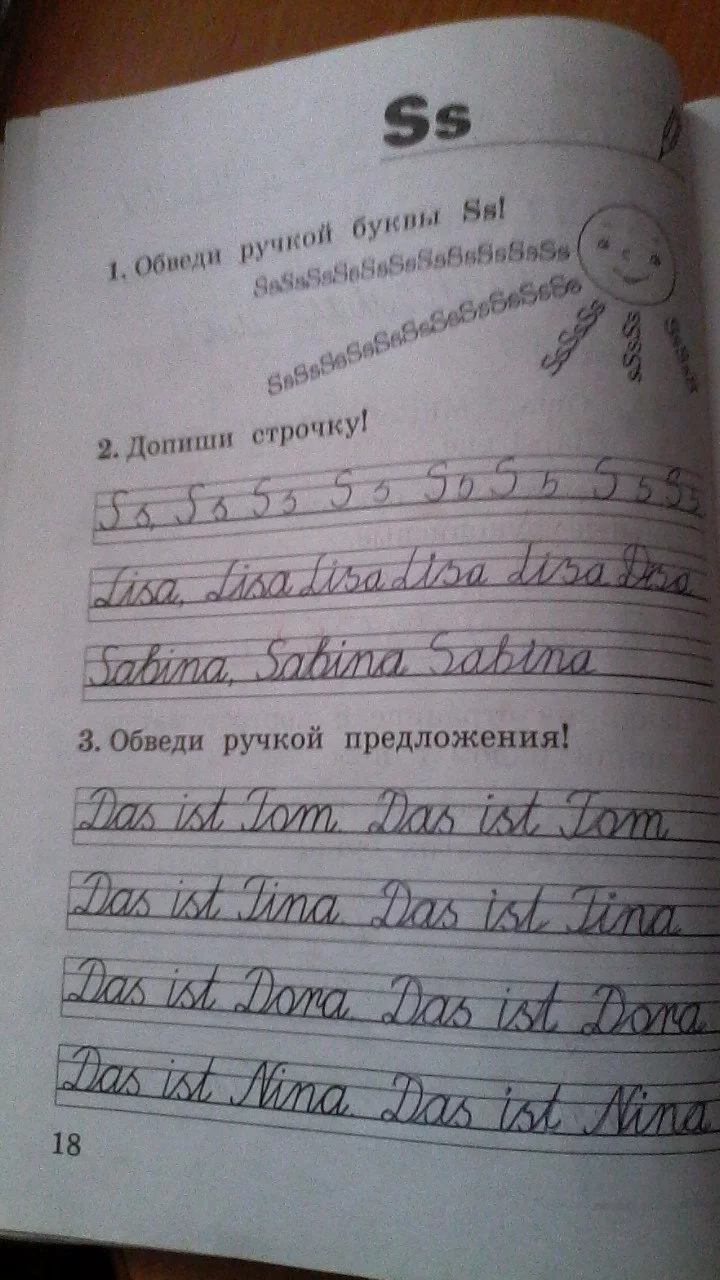 Ss
1. Обведи ручкой буквы Ss!
SsSsSsSsSsSsSsSsSsSsSs
SsSsSsSsSsSsSsSsSsSsSs
SsSsSs
sSsSs
SsSsS
2. Допиши строчку!
Ss, Ss Ss Ss Ss Ss Ss Ss
Lisa, Lisa Lisa Lisa Lisa
Sabina, Sabina Sabina
3. Обведи ручкой предложения!
Das ist Tom. Das ist Tom
Das ist Tina. Das ist Tina
Das ist Dora. Das ist Dora.
Das ist Nina. Das ist Nina.
18